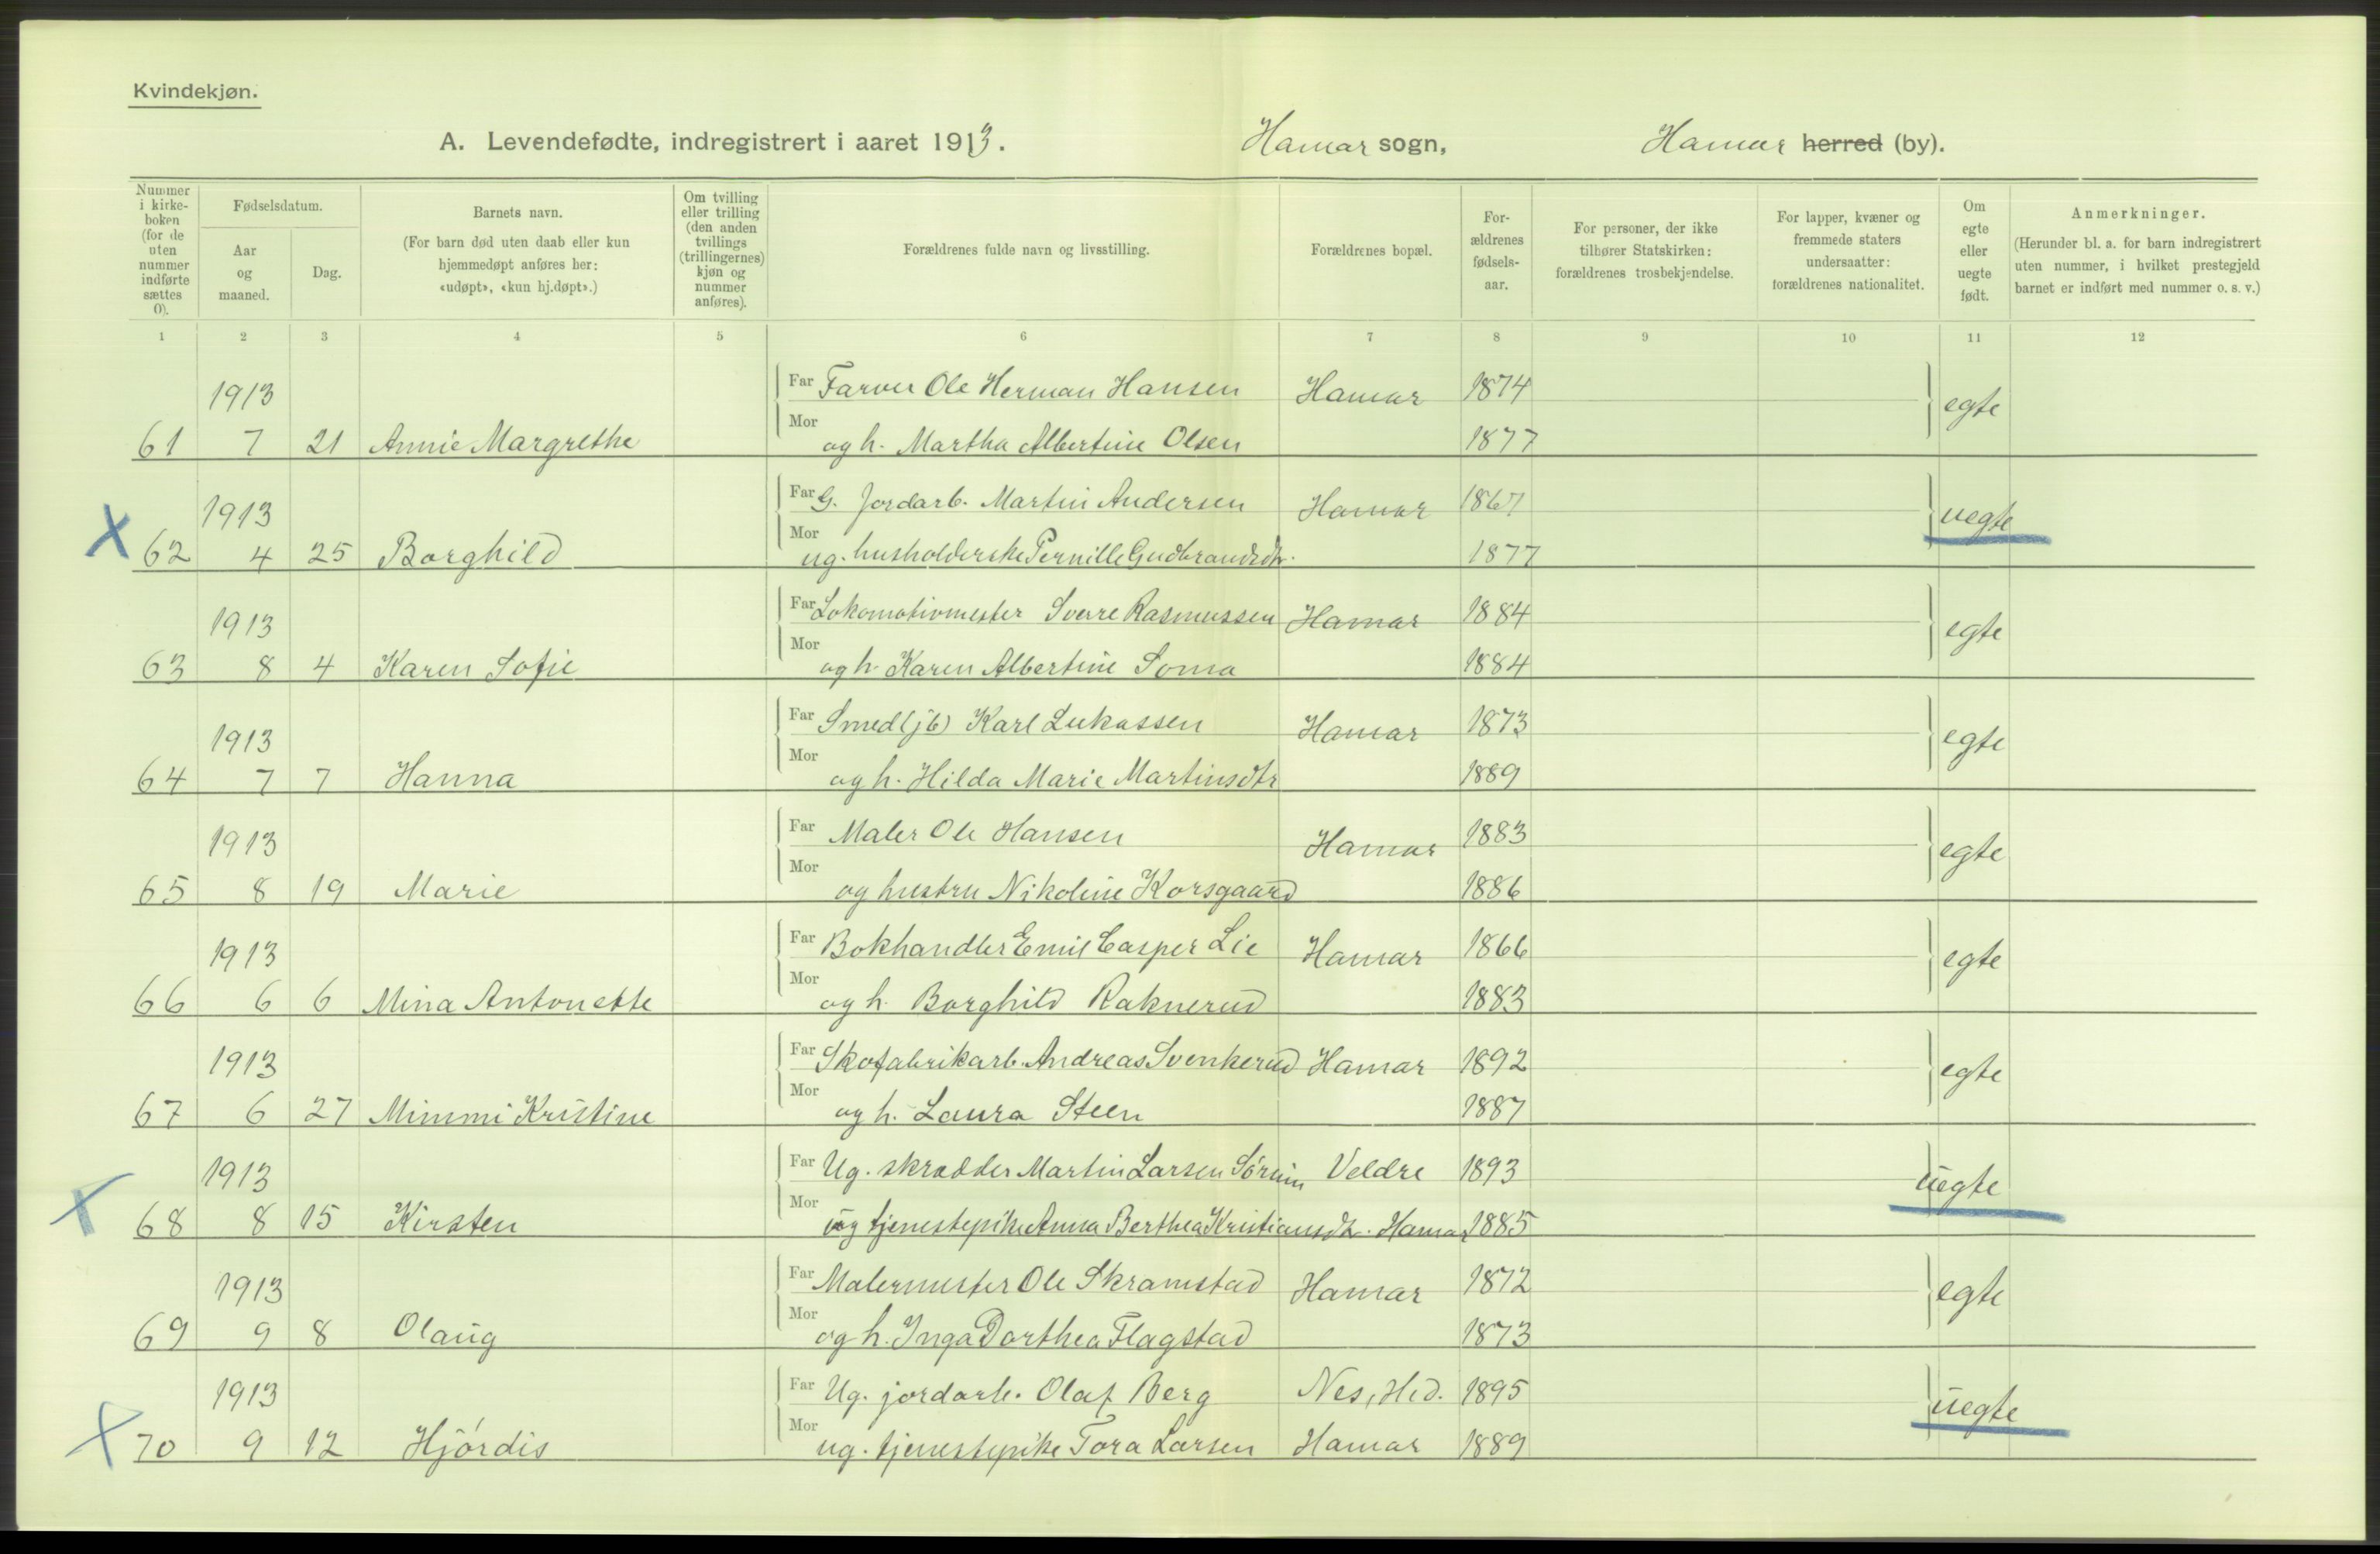 Kvindekjøn.
A. Levendefødte, indregistrert i aaret 1913. Hamar sogn, Hamar herred (by).
Nummer i kirkeboken (for de uten nummer indførte sættes 0).
Fødselsdatum.
Aar og maaned.
Dag.
Barnets navn.
(For barn død uten daab eller kun hjemmedøpt anføres her: «udøpt», «kun hj.døpt».)
Om tvilling eller trilling (den anden tvillings (trillingernes) kjøn og nummer anføres).
Forældrenes fulde navn og livsstilling.
Forældrenes bopæl.
Forældrenes fødselsaar.
For personer, der ikke tilhører Statskirken: forældrenes trosbekjendelse.
For lapper, kvæner og fremmede staters undersaatter: forældrenes nationalitet.
Om egte eller uegte født.
Anmerkninger.
(Herunder bl. a. for barn indregistrert uten nummer, i hvilket prestegjeld barnet er indført med nummer o. s. v.)
1 2 3 4 5 6 7 8 9 10 11 12
1913 Far Farver Ole Herman Hansen Hamar 1874 egte
61 7 21 Annie Margrethe Mor og h. Martha Albertine Olsen 1877
X 1913 Far G. Jordarb. Martin Andersen Hamar 1867 uegte
62 4 25 Borghild Mor ug. husholderske Pernille Gudbrandsdtr. 1877
1913 Far Lokomotivmester Sverre Rasmussen Hamar 1884 egte
63 8 4 Karen Sofie Mor og h. Karen Albertine Soma 1884
1913 Far Smed (jb) Karl Lukassen Hamar 1873 egte
64 7 7 Hanna Mor og h. Hilda Marie Martinsdtr 1889
1913 Far Maler Ole Hansen Hamar 1883 egte
65 8 19 Marie Mor og hustru Nikoline Korsgaard 1886
1913 Far Bokhandler Emil Casper Lie Hamar 1866 egte
66 6 6 Mina Antonette Mor og h. Borghild Raknerud 1883
1913 Far Skofabrikarb. Andreas Svenkerud Hamar 1892 egte
67 6 27 Mimmi Kristine Mor og h. Laura Steen 1887
X 1913 Far Ug. skrædder Martin Larsen Sørum Veldre 1893 uegte
68 8 15 Kirsten Mor ug tjenestepike Anna Berthea Kristiansdtr. Hamar 1885
1913 Far Malermester Ole Skramstad Hamar 1872 egte
69 9 8 Olaug Mor og h. Inga Dorthea Flagstad 1873
X 1913 Far Ug. jordarb. Olaf Berg Nes, Hed. 1895 uegte
70 9 12 Hjórdis Mor ug. tjenestepike Tora Larsen Hamar 1889